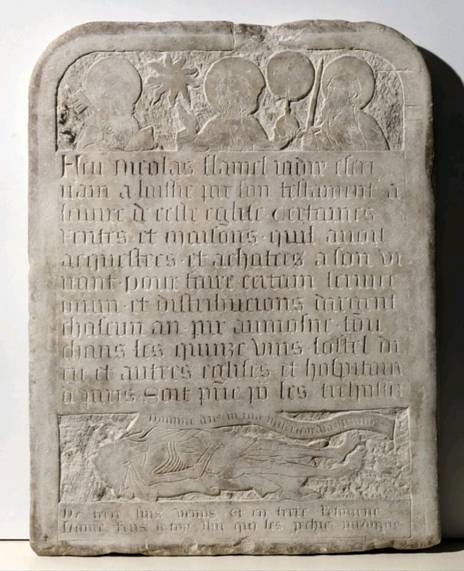 Feu nicolas flamel iadis escri
uain a laissie par son testament a
leuure de ceste eglise certaines
rentes et maisons quil auoit
acquestees et achatees a son vi
uant pour faire certain seruice
diuin et distribucions dargent
chascun an par aumosne tou
chans les quinze vins lostel di
eu et autres eglises et hospitaux
a paris Soit prie les trespasses
Domine deus in tua misericordia speraui
De terre suis venus et en terre retourne
Lame rens a toy ihu qui les pechies pardonne